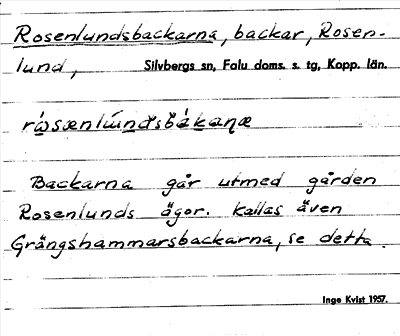 Rosenlundsbackarna, backar, Rosen-
lund, Silvbergs sn, Falu doms. s. tg, Kopp. län.
Backarna går utmed gården
Rosenlunds ägor. Kallas även
Grängshammarsbackarna, se detta.
Inge Kvist 1957.